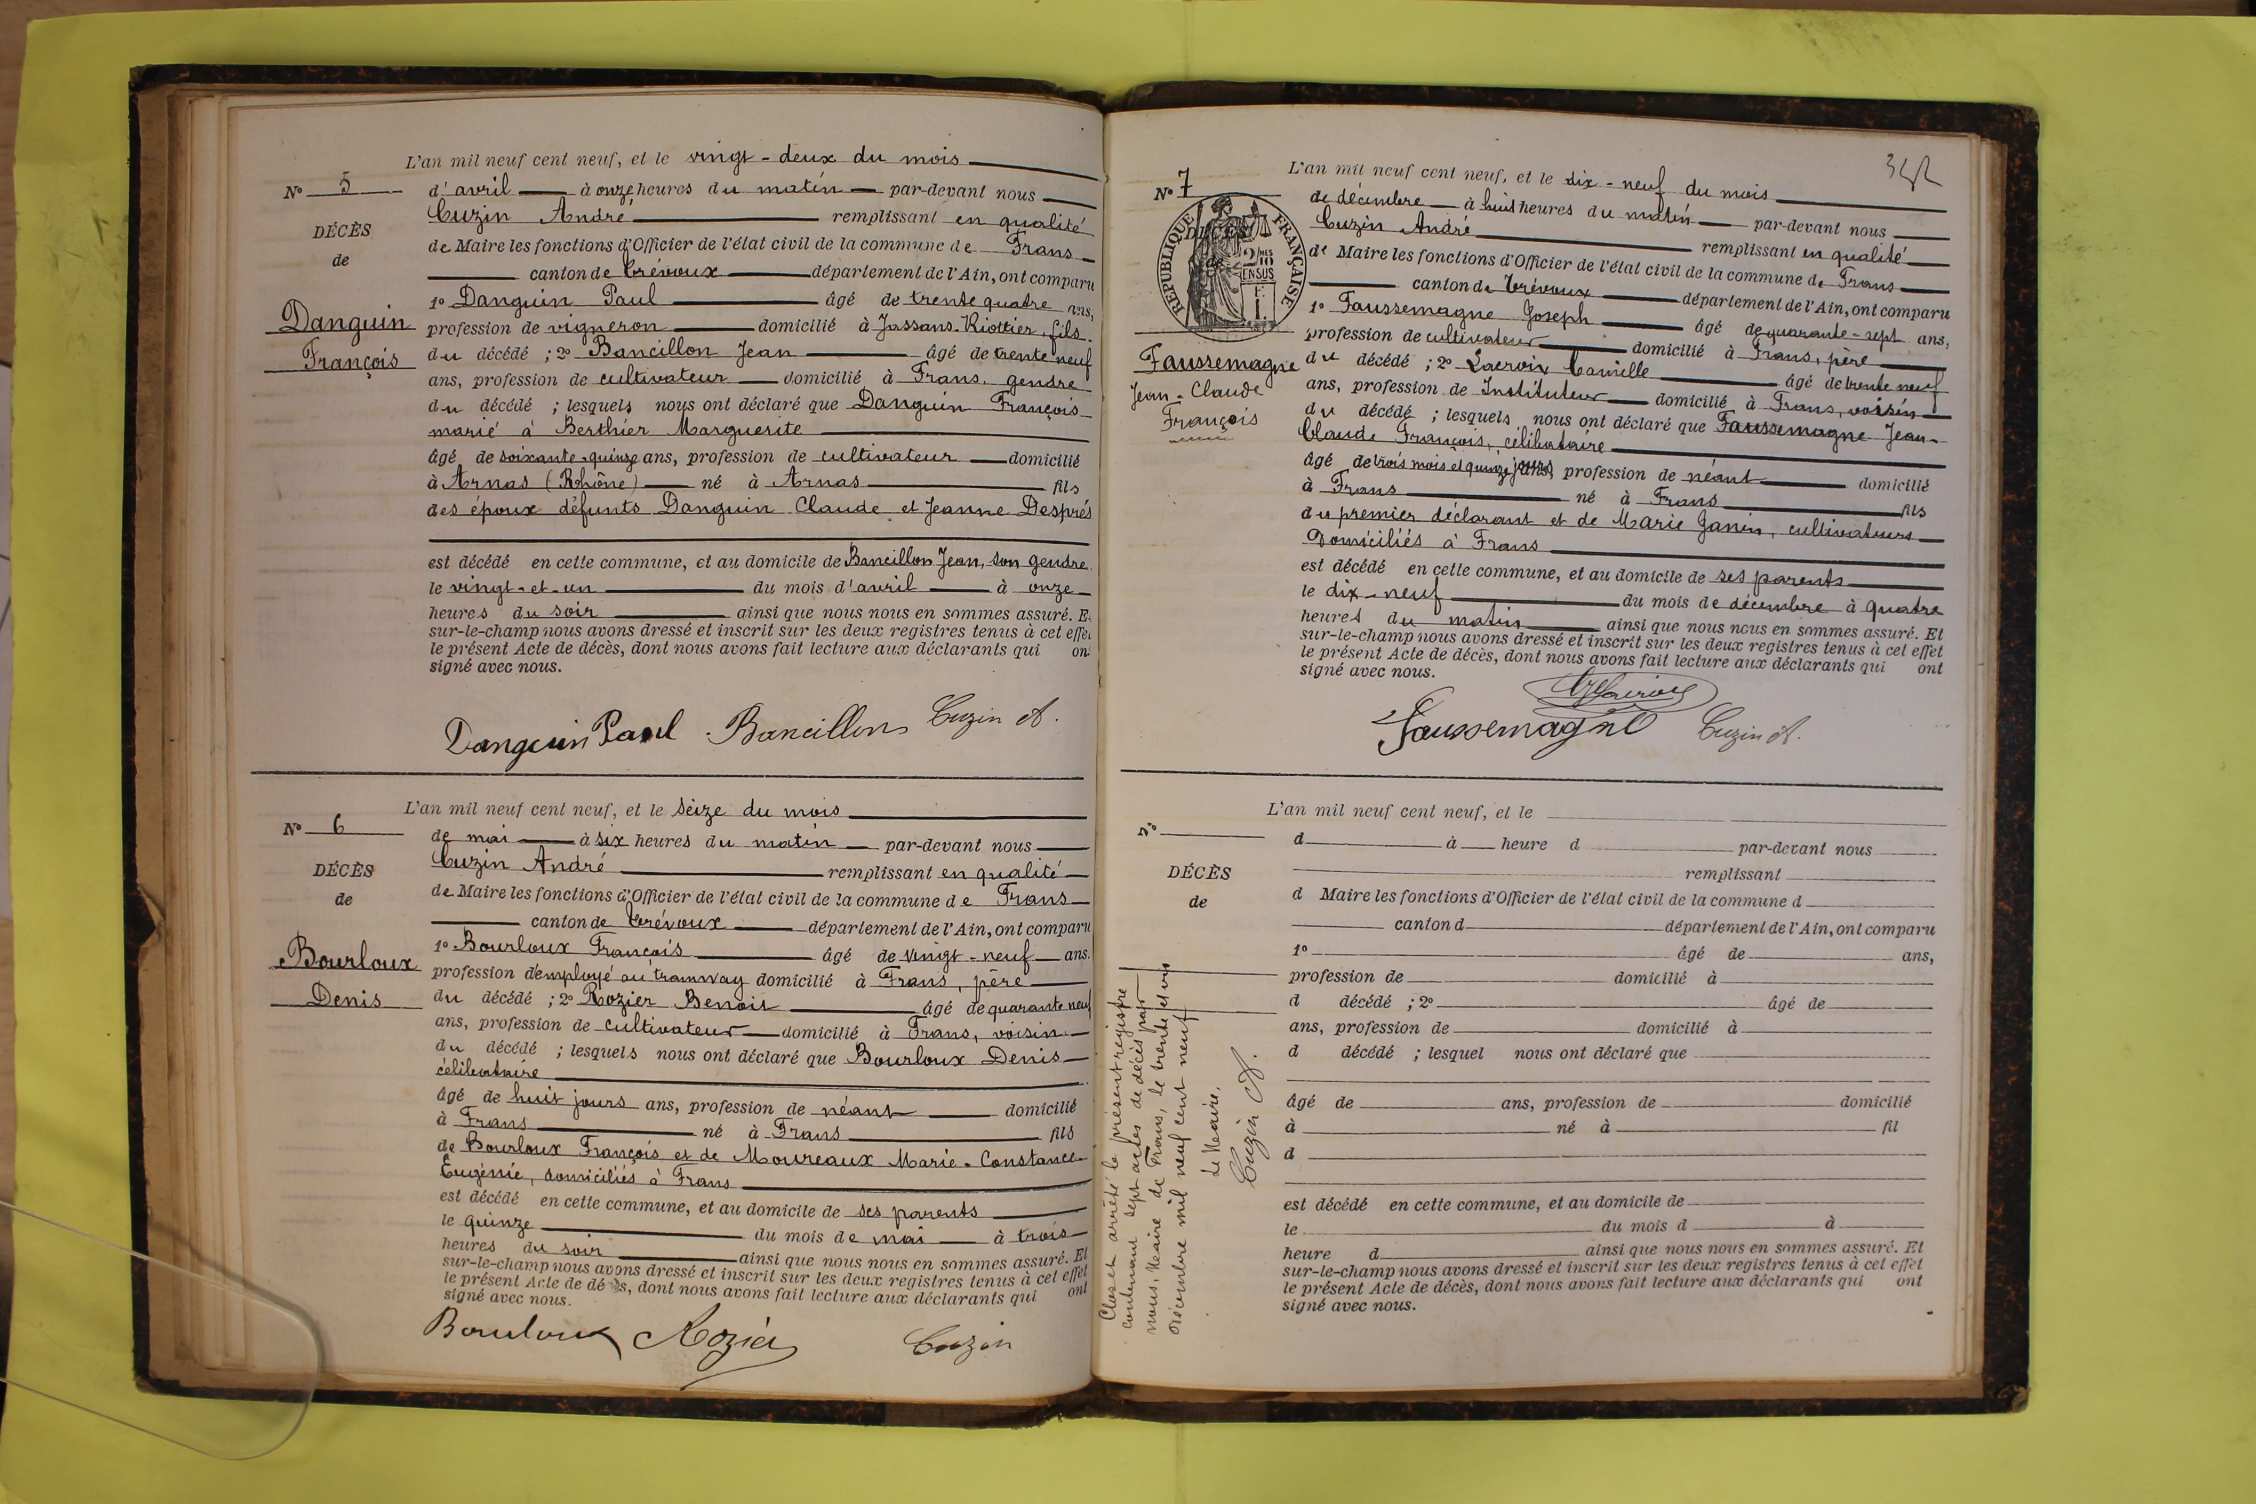 L'an mil neuf cent neuf, et le vingt-deux du mois
N° 5
d'avril à onze heures du matin par-devant nous
Cuzin André remplissant en qualité
DÉCÈS
de Maire les fonctions d'Officier de l'état civil de la commune de Frans
de
canton de Trévoux département de l'Ain, ont comparu
1° Danguin Paul âgé de trente quatre ans,
Danguin
profession de vigneron domicilié à Jassans-Riottier, fils
François
du décédé ; 2° Bancillon Jean âgé de trente neuf
ans, profession de cultivateur domicilié à Frans, gendre
du décédé ; lesquels nous ont déclaré que Danguin François
marié à Berthier Marguerite
âgé de soixante-quinze ans, profession de cultivateur domicilié
à Arnas (Rhône) né à Arnas fils
des époux défunts Danguin Claude et Jeanne Després
est décédé en cette commune, et au domicile de Bancillon Jean, son gendre
le vingt-et-un du mois d'avril à onze
heures du soir ainsi que nous nous en sommes assuré. E
sur-le-champ nous avons dressé et inscrit sur les deux registres tenus à cet effe
le présent Acte de décès, dont nous avons fait lecture aux déclarants qui on
signé avec nous.
Danguin Paul Bancillon Cuzin A.
L'an mil neuf cent neuf, et le seize du mois
N° 6
de mai à six heures du matin par-devant nous
Cuzin André remplissant en qualité
DÉCÈS
de Maire les fonctions d'Officier de l'état civil de la commune de Frans
de
canton de Trévoux département de l'Ain, ont comparu
1° Bourloux François âgé de vingt-neuf ans.
Bourloux
profession d'employé au tramway domicilié à Frans, père
Denis
du décédé ; 2° Rozier Benoit âgé de quarante neuf
ans, profession de cultivateur domicilié à Frans, voisin
du décédé ; lesquels nous ont déclaré que Bourloux Denis
célibataire
âgé de huit jours ans, profession de néant domicilié
à Frans né à Frans fils
de Bourloux François et de Moureaux Marie-Constance
Eugénie, domiciliés à Frans
est décédé en cette commune, et au domicile de ses parents
le quinze du mois de mai à trois
heures du soir ainsi que nous nous en sommes assuré. Et
sur-le-champ nous avons dressé et inscrit sur les deux registres tenus à cet effet
le présent Acte de dé s, dont nous avons fait lecture aux déclarants qui ont
signé avec nous.
Bourloux Rozier Cuzin
342
L'an mil neuf cent neuf, et le dix-neuf du mois
N° 7
de décembre à huit heures du matin par-devant nous
Cuzin André remplissant en qualité
RÉPUBLIQUE FRANÇAISE
DÉCÈS
de
2/10MES
EN SUS
de Maire les fonctions d'Officier de l'état civil de la commune de Frans
canton de Trévoux département de l'Ain, ont comparu
1° Faussemagne Joseph âgé de quarante-sept ans,
profession de cultivateur domicilié à Frans, père
Faussemagne
Jean-Claude
François
du décédé ; 2° Lacroix Camille âgé de trente neuf
ans, profession de Instituteur domicilié à Frans, voisin
du décédé ; lesquels nous ont déclaré que Faussemagne Jean-
Claude François, célibataire
âgé de trois mois et quinze jours ans, profession de néant domicilié
à Frans né à Frans fils
du premier déclarant et de Marie Janin, cultivateurs
Domiciliés à Frans
est décédé en cette commune, et au domicile de ses parents
le dix-neuf du mois de décembre à quatre
heures du matin ainsi que nous nous en sommes assuré. Et
sur-le-champ nous avons dressé et inscrit sur les deux registres tenus à cet effet
le présent Acte de décès, dont nous avons fait lecture aux déclarants qui ont
signé avec nous.
CLacroix
Faussemagne Cuzin A.
L'an mil neuf cent neuf, et le
N°
d à heure d par-devant nous
remplissant
DÉCÈS
d Maire les fonctions d'Officier de l'état civil de la commune d
de
canton d département de l'Ain, ont comparu
1° âgé de ans,
profession de domicilié à
d décédé ; 2° âgé de
ans, profession de domicilié à
d décédé ; lesquel nous ont déclaré que
âgé de ans, profession de domicilié
à né à fil
d
est décédé en cette commune, et au domicile de
le du mois d à
heure d ainsi que nous nous en sommes assuré. Et
sur-le-champ nous avons dressé et inscrit sur les deux registres tenus à cet effet
le présent Acte de décès, dont nous avons fait lecture aux déclarants qui ont
signé avec nous.
Clos et arrêté le présent registre
contenant sept actes de décès par
nous, Maire de Frans, le trente et un
décembre mil neuf cent neuf
Le Maire,
Cuzin A.